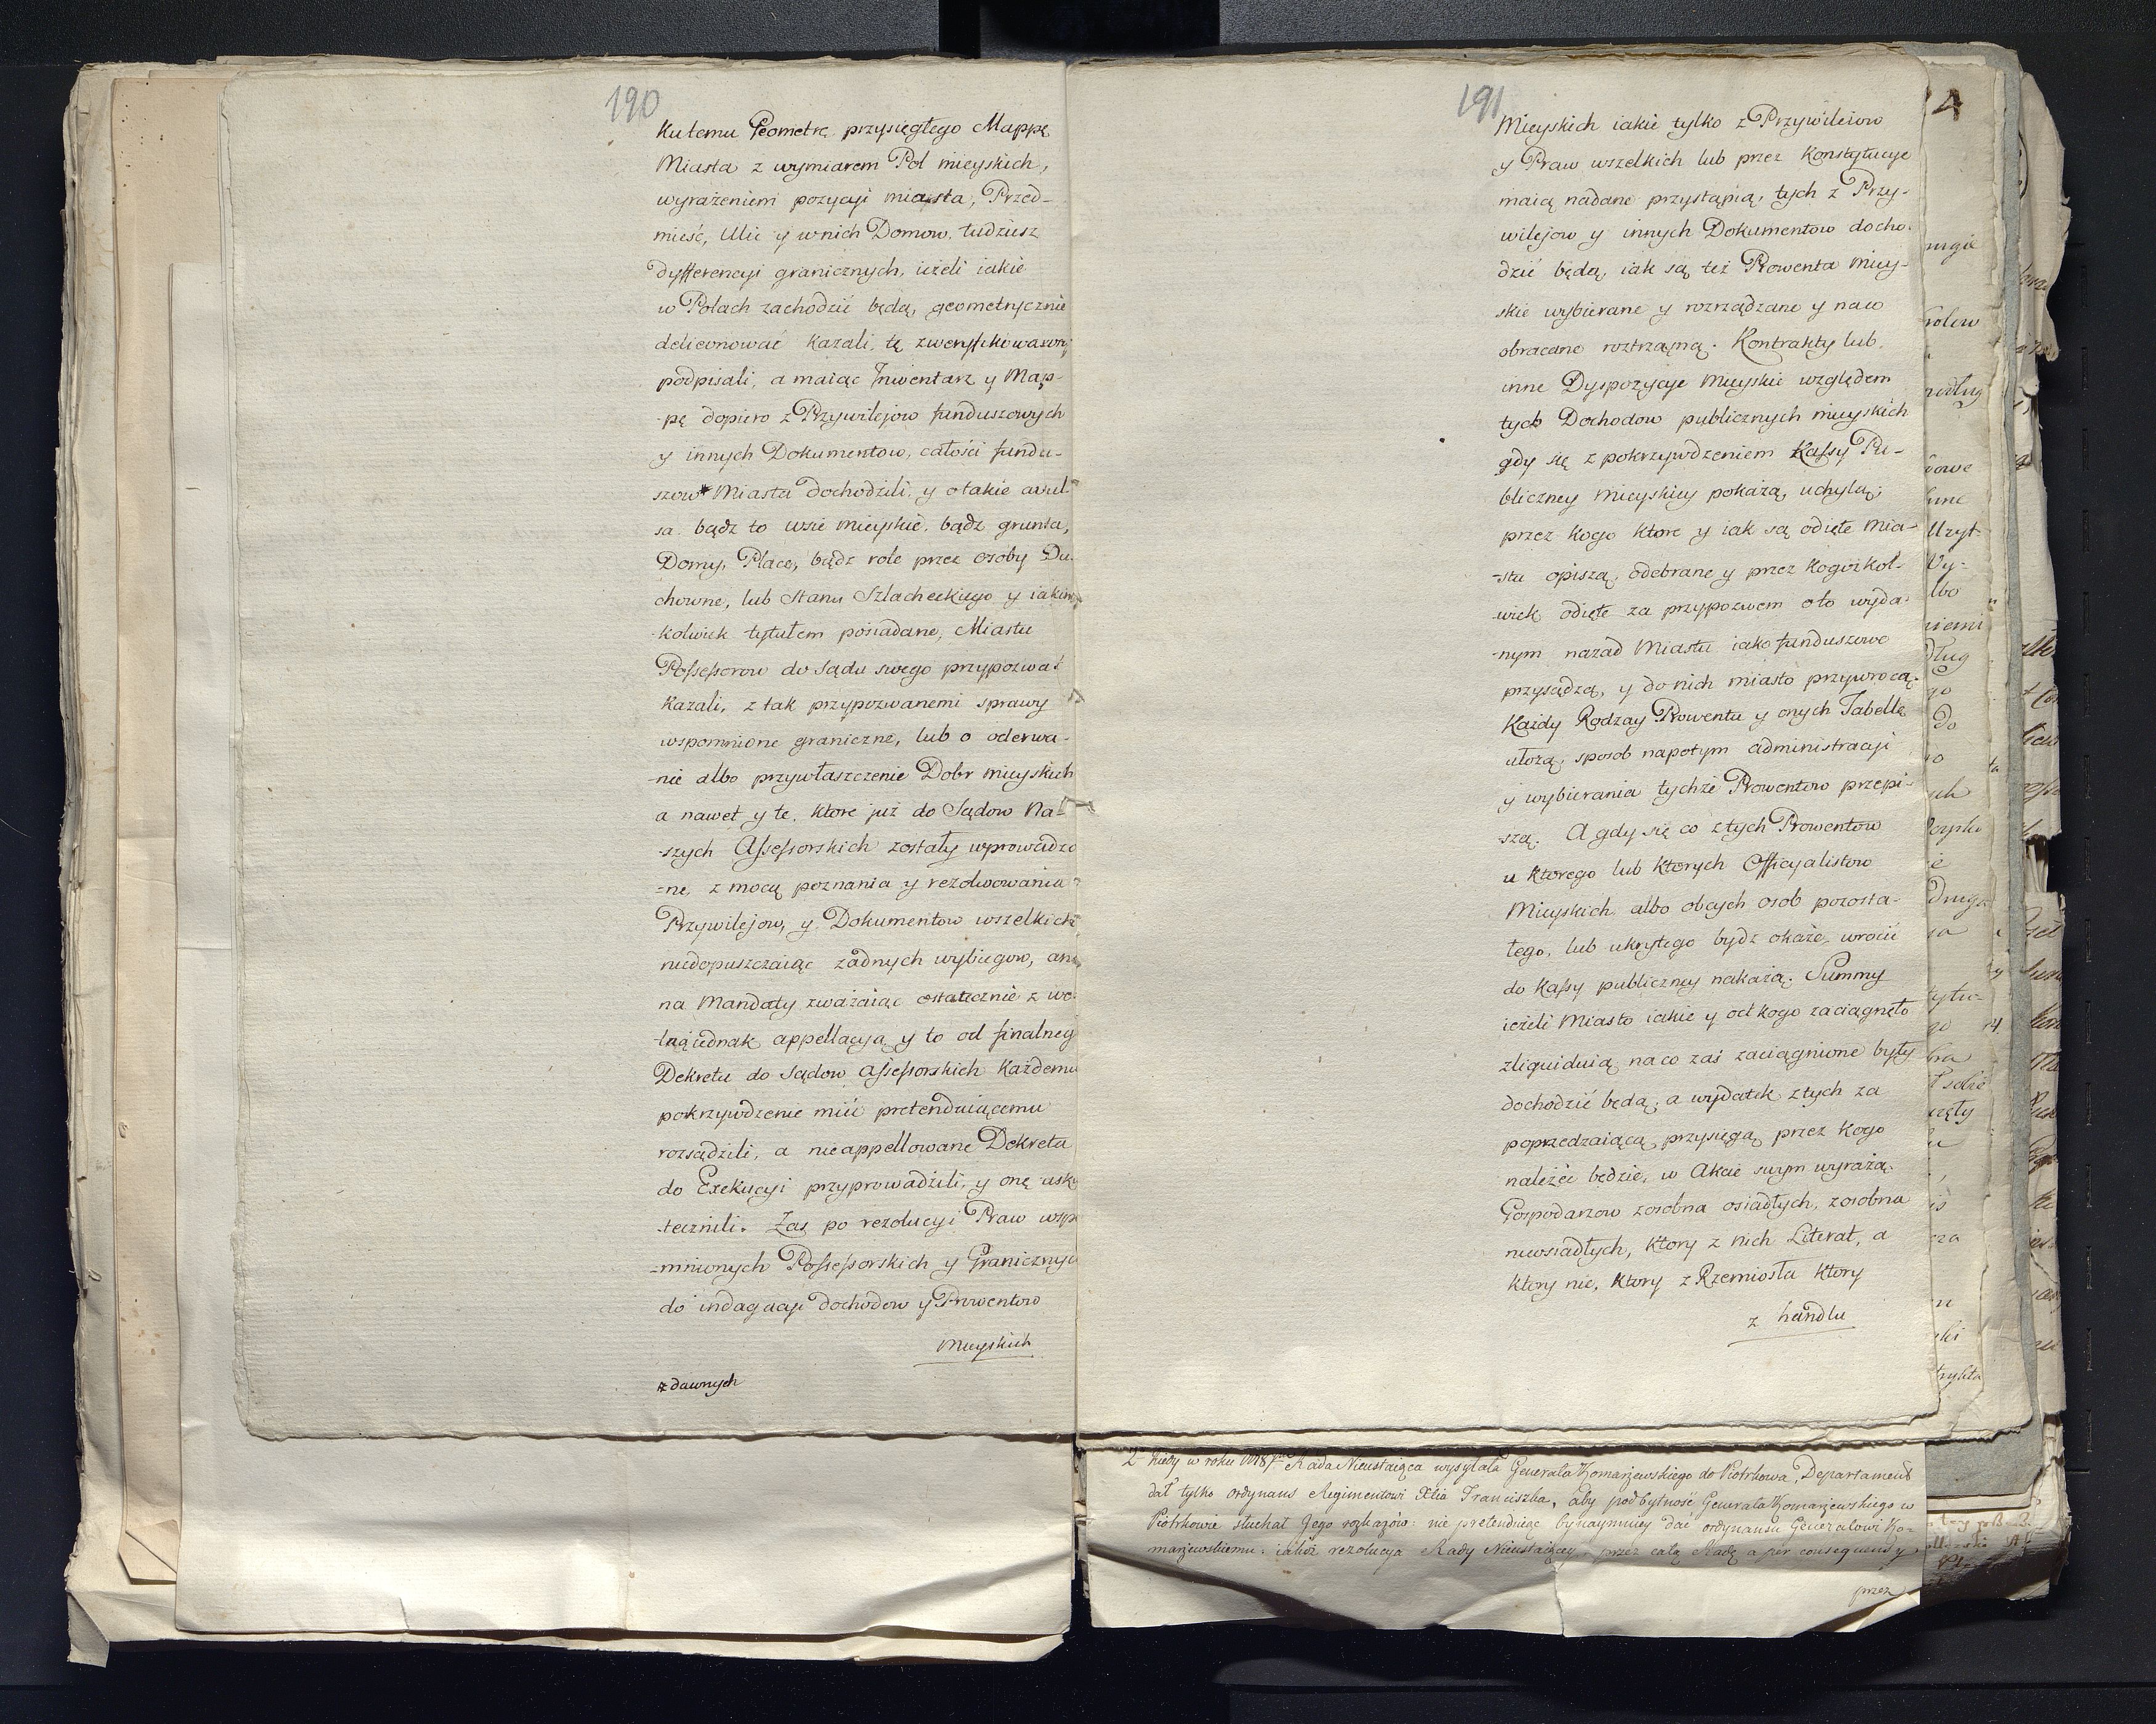 190
kutemu Geometrę przysięgłego Mappę
Miasta z wymiarem Pol mieyskich,
wyrażeniem pozycyi miasta, Przed-
mieść, Ulic y wnich Domow, tudziesz
dyfferencyi granicznych, ieżeli iakie
w Polach zachodzić będą, geometrycznie
delieonować kazali, tę zweryfikowawszy
podpisali, a maiąc Inwentarz y Map-
-pę dopiero z Przywilejow funduszowych
y innych Dokumentow, całości fundu-
szow # Miasta dochodzili, y otakie awul-
sa bądz to wsie mieyskie, bądz grunta,
Domy, Place, bądz role przez osoby Du-
chowne, lub Stanu Szlacheckiego y iakim
-kolwiek tytułem posiadane, Miastu
Possessorow do sądu swego przypozwać
kazali, z tak przypozwanemi sprawy
wspomnione graniczne, lub o oderwa-
-nie albo przywłaszczenie Dobr mieyskich
a nawet y te, ktore już do Sądow Na-
-szych Assessorskich zostały wprowadzo
-ne, z mocą poznania y rezolwowania
Przywilejow, y Dokumentow wszelkich
niedopuszczaiąc żadnych wybiegow, ani
na Mandaty zważaiąc ostatecznie z wo-
-lną iednak appellacyą y to od finalneg
Dekretu do Sądow Assessorskich każdemu
pokrzywdzenie mieć pretenduiącemu
rozsądzili, a nieappellowane Dekreta
do Exekucyi przyprowadzili, y onę usku
-tecznili. Zas po rezolucyi Praw wspo
-mnionych Possessorskich y Granicznych
do indagacyi dochodow y Prowentow
Mieyskich
# dawnych
191
Mieyskich iakie tylko z Przywileiow
y Praw wszelkich lub przez Konstytucye
maią nadane przystąpią, tych z Przy-
wilejow y innych Dokumentow docho-
dzić będą, iak są też Prowenta miey-
skie wybierane y rozrządzane y naco
obracane roztrząsną. Kontrakty lub
inne Dyspozycye mieyskie względem
tych Dochodow publicznych mieyskich
gdy się z pokrzywdzeniem Kassy Pu-
bliczney mieyskiey pokażą, uchylą;
przez kogo ktore y iak są odięte Mia-
-stu opiszą, odebrane y przez kogożkol-
-wiek odięte za przypozwem oto wyda-
-nym nazad Miastu iako funduszowe
przysądzą, y do nich miasto przywrocą.
Każdy Rodzay Prowentu y onych Tabellę
ułożą, sposob napotym administracyi
y wybierania tychże Prowentow przepi-
-szą. A gdy się co z tych Prowentow
u ktorego lub ktorych Officyalistow
Mieyskich albo obcych osob pozosta-
łego, lub ukrytego bydz okaże, wrocić
do Kassy publiczney nakażą. Summy
ieżeli Miasto iakie y od kogo zaciągnęło
zliquiduią, na co zaś zaciągnione były
dochodzić będą, a wydatek z tych za
poprzedzaiącą przysięgą przez kogo
należeć będzie, w Akcie swym wyrażą.
Gospodarzow zosobna osiadłych, zosobna
nieosiadłych, ktory z nich Literat, a
ktory nie, ktory z Rzemiosła ktory
z handlu
4
2º Kiedy w roku 1778 Rada Nieustaiąca wysyłała Generała Komarzewskiego do Piotrkowa, Departament
dał tylko ordynans Regimentowi Xcia Franciszka, aby pod bytność Generała Komarzewskiego w
Piotrkowie słuchał Jego rozkazów: nie pretenduiąc bynaymniey dać ordynansu Generałowi Ko-
marzewskiemu: iakoż rezolucya Rady Nieustaiącey, przez całą Radę a per consequens y
przez